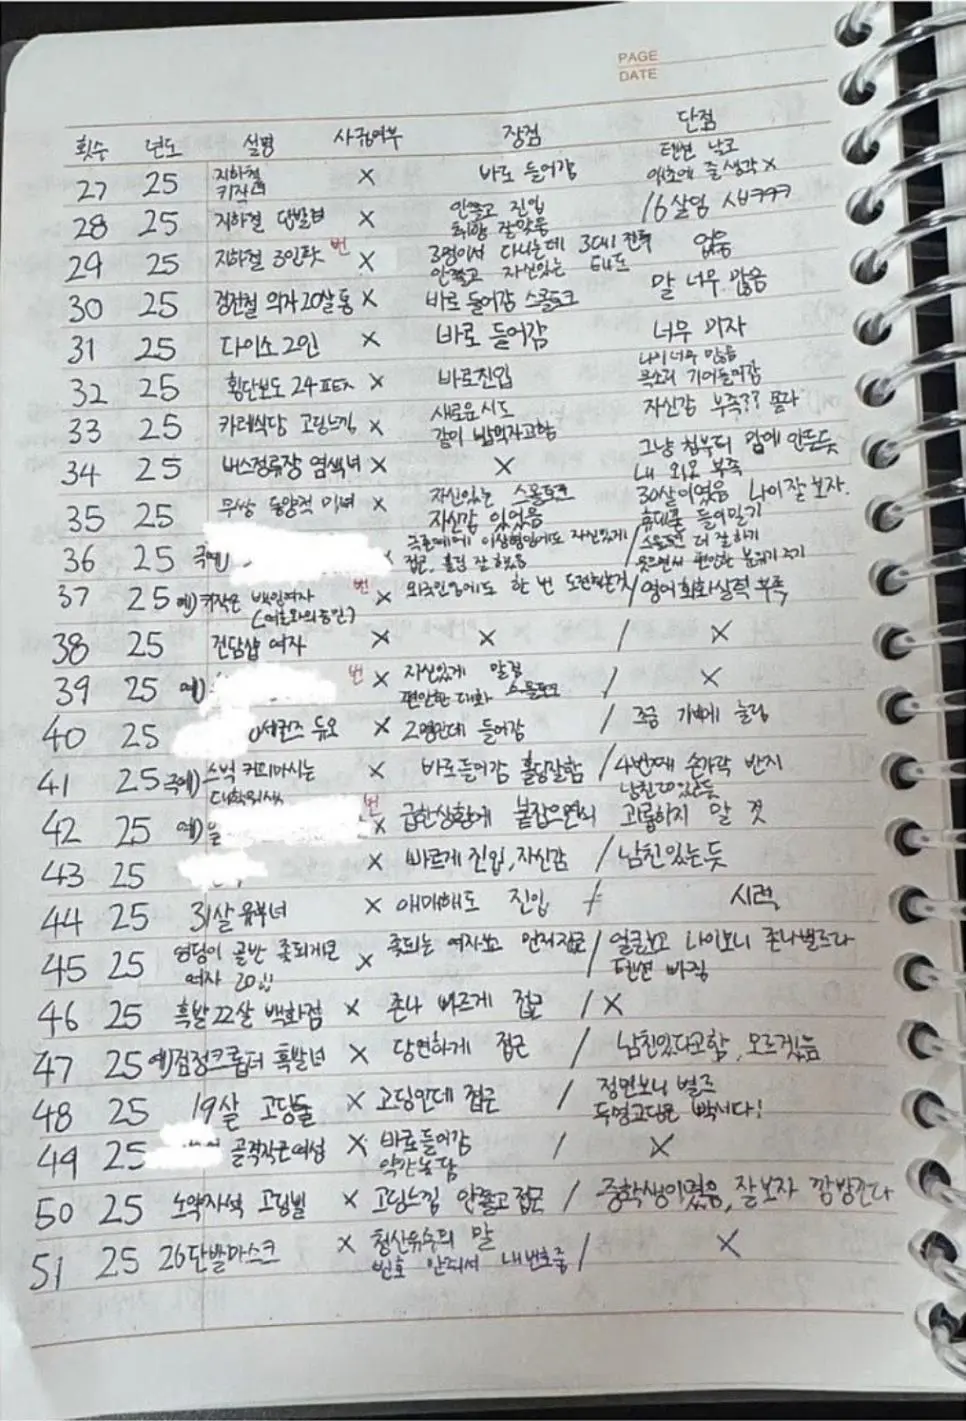 PAGE
DATE
횟수 년도 설명 사귐여부 장점 단점
27 25 지하철 키작녀 X 바로 들어감 텐션 낮고 번호에 줄 생각 X
28 25 지하철 단발녀 X 안쫄고 진입 /16살임 시브ㅋㅋㅋ
29 25 지하철 3인팟 번 X 3명이서 다니는데 3대1 전투 안쫄고 자신있는 태도 없음
30 25 경전철 의자 20살 통 X 바로 들어감 스몰토크 말 너무 많음
31 25 다이소 2인 X 바로 들어감 너무
32 25 횡단보도 24 X 바로진입 나이너무 많음 목소리 기어들어감
33 25 카레식당 고딩느낌 X 새로운시도 같이 밥먹자고함 자신감 부족?? 쫄다
34 25 버스정류장 염색녀 X X 그냥 첨부터 맘에 안든듯 내 외모 부족
35 25 무쌍 동양적 미녀 X 자신있는 스몰토크 자신감 있었음 30살이였음 나이잘보자. 휴대폰 들이밀기
36 25 극예) X 이상형임에도 자신있게 접근, 플러팅 잘 했음 /스몰토크 더 잘하기 웃으면서 편안한 분위기 주기
37 25 예) 키작은 백인여자 번 X 외국인임에도 한 번 도전해본것 /영어회화실력 부족
38 25 전담샵 여자 X X / X
39 25 예) 번 X 자신있게 말걸 편안한 대화 스몰토크 / X
40 25 세퀸즈 듀오 X 2명인데 들어감 / 조금 가볍게 놀림
41 25 극예) 스벅 커피마시는 대학원생 X 바로들어감 할당말함 /4번째 손가락 반지 남친있는듯
42 25 예) 번 X 급한상황에 붙잡으면서 괴롭히지 말 것
43 25 X 빠르게 진입, 자신감 / 남친있는듯
44 25 31살 유부녀 X 애매해도 진입 / 시력
45 25 엉덩이 골반 좆되게큰 여자 20 X 좆되는 여자보고 먼저접근 / 얼굴보고 나이보니 존나별로다 텐션 빠짐
46 25 흑발 22살 백화점 X 존나 빠르게 접근 / X
47 25 예)검정크롭티 흑발녀 X 당연하게 접근 / 남친있다고함, 모르겠음
48 25 19살 고딩들 X 고딩인데 접근 / 정면보니 별로
49 25 골격작은여성 X 바로들어감 약간농담 / X
50 25 노약자석 고딩삘 X 고딩느낌 안쫄고 접근 / 중학생이였음, 잘보자 깜방간다
51 25 26단발마스크 X 청산유수의 말 번호 안줘서 내번호줌 / X